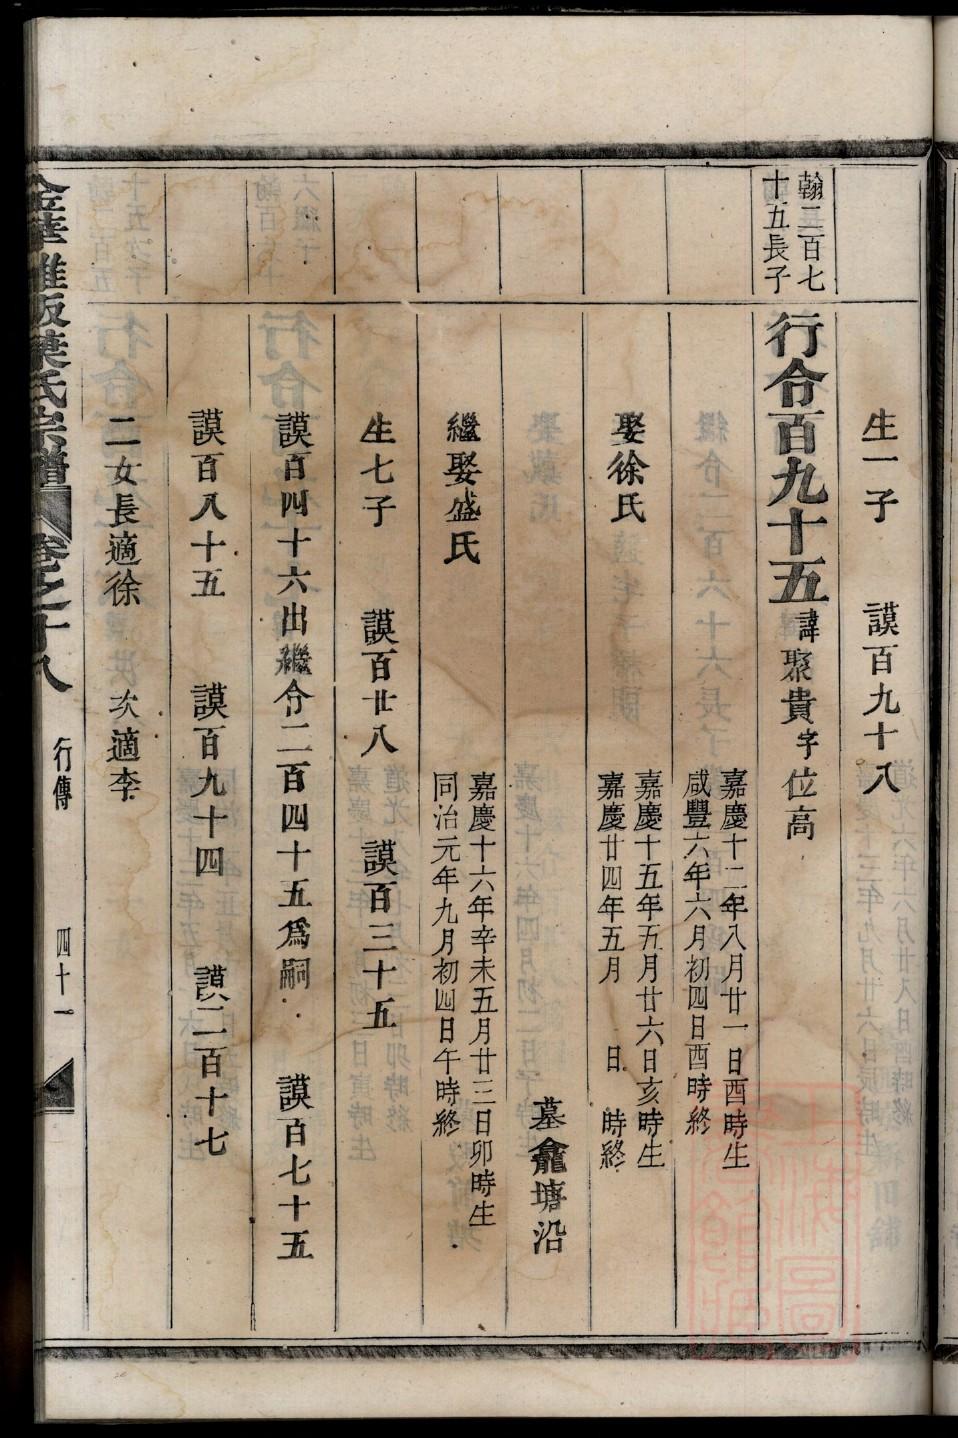 生一子　謨百九十八
翰二百七
十五長子
行令百九十五 諱聚貴字位高
嘉慶十二年八月廿一日酉時生
咸豐六年六月初四日酉時終
娶徐氏
嘉慶十五年五月廿六日亥時生
嘉慶廿四年五月　日　時終
墓龕塘沿
繼娶盛氏
嘉慶十六年辛未五月廿三日卯時生
同治元年九月初四日午時終
生七子　謨百廿八　謨百三十五
謨百四十六出繼令二百四十五爲嗣　謨百七十五
謨百八十五　謨百九十四　謨二百十七
二女長適徐　次適李
氏宗譜 卷之十八 行傳 四十一